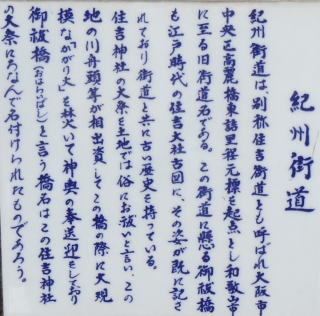 紀州街道
紀州街道は、別称住吉街道とも呼ばれ大阪市
中央区高麗橋東詰里程元標を起点とし和歌山市
に至る旧街道名である。この街道に懸る御祓橋
も江戸時代の住吉大社古図に、その姿が既に記さ
れており街道と共に古い歴史を持っている。
住吉神社の大祭を土地では俗にお祓いと言い、この
地の川舟頭等が相出資してこの橋の際に大規
模な「かがり火」を焚いて神輿の奉送迎をしており
御祓橋(おはらいばし)と言う橋名はこの住吉神社
の大祭にちなんで名付けられたものであろう。